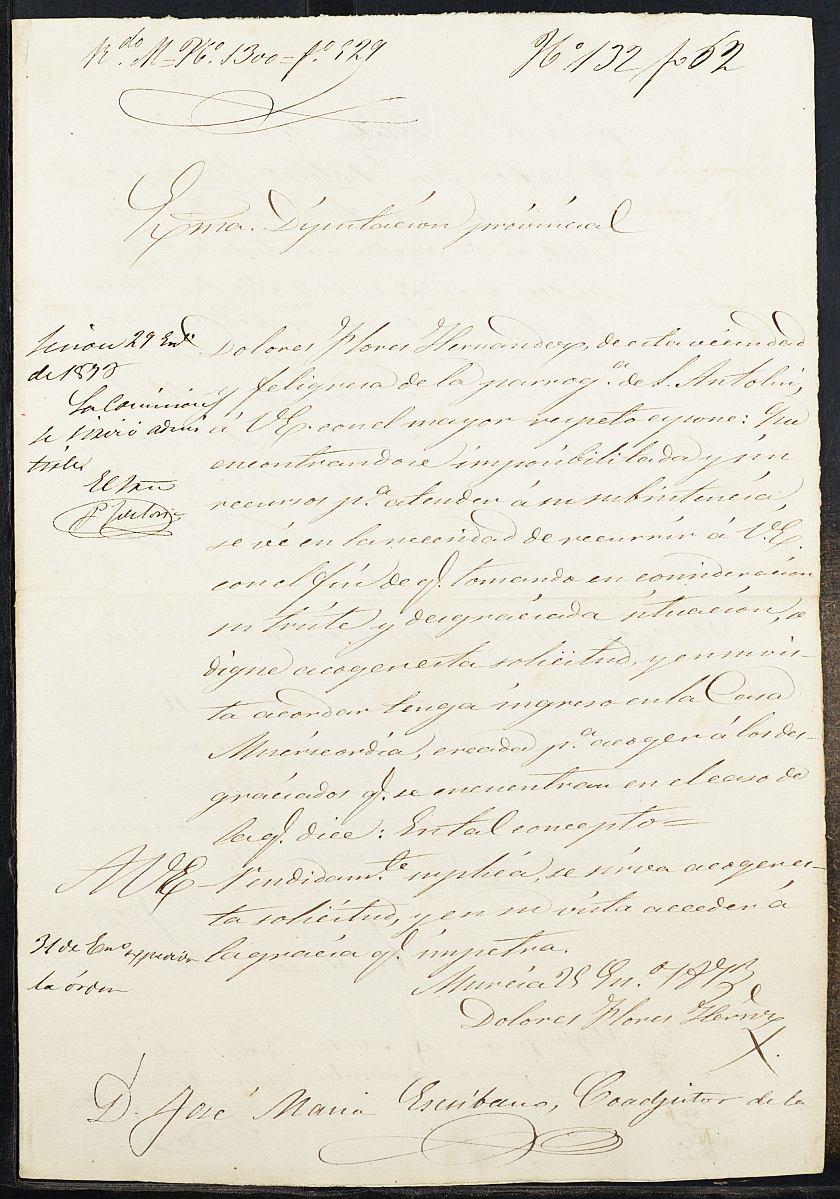 R.do M= N.o 1300=f.o 329
N.o 132 f.o 62
Exma. Diputación provincial
Sesion 29 En.o
de 1873
La Comision
se sirvió admi
tirla
El Srio
Dolores Flores Hernandez, de esta vecindad
y feligresa de la parroq.a de S. Antolin,
á V.E. con el mayor respeto espone: Que
encontrandose imposibilitada y sin
recursos p.a atender á su subsistencia
se vé en la necesidad de recurrir á V.E.
con el fin de q. tomando en consideración
su triste y desgraciada situación, se
digne acoger esta solicitud, y en su vis-
ta acordar tenga ingreso en la Casa
Misericordia, creada p.a acoger á los des-
graciados q. se encuentran en el caso de
la q. dice: En tal concepto=
A V.E. Rendidam.te suplica, se sirva acoger es-
ta solicitud, y en su vista acceder á
la gracia q. impetra.
31 de En.o espedida
la órden
Murcia 25 En.o 1873
Dolores Flores Hernz
D. José Maria Escribano, Coadjutor de la